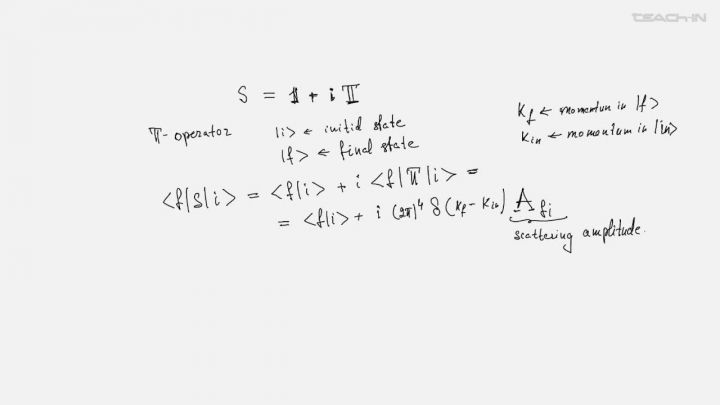 TEACH-IN
S = 1 + i 𝕋
𝕋-operator
|i> ← initial state
|f> ← final state
K_f ← momentum in |f>
K_in ← momentum in |in>
<f|S|i> = <f|i> + i <f|𝕋|i> =
= <f|i> + i (2π)^4 δ(K_f - K_in) A_fi
scattering amplitude.